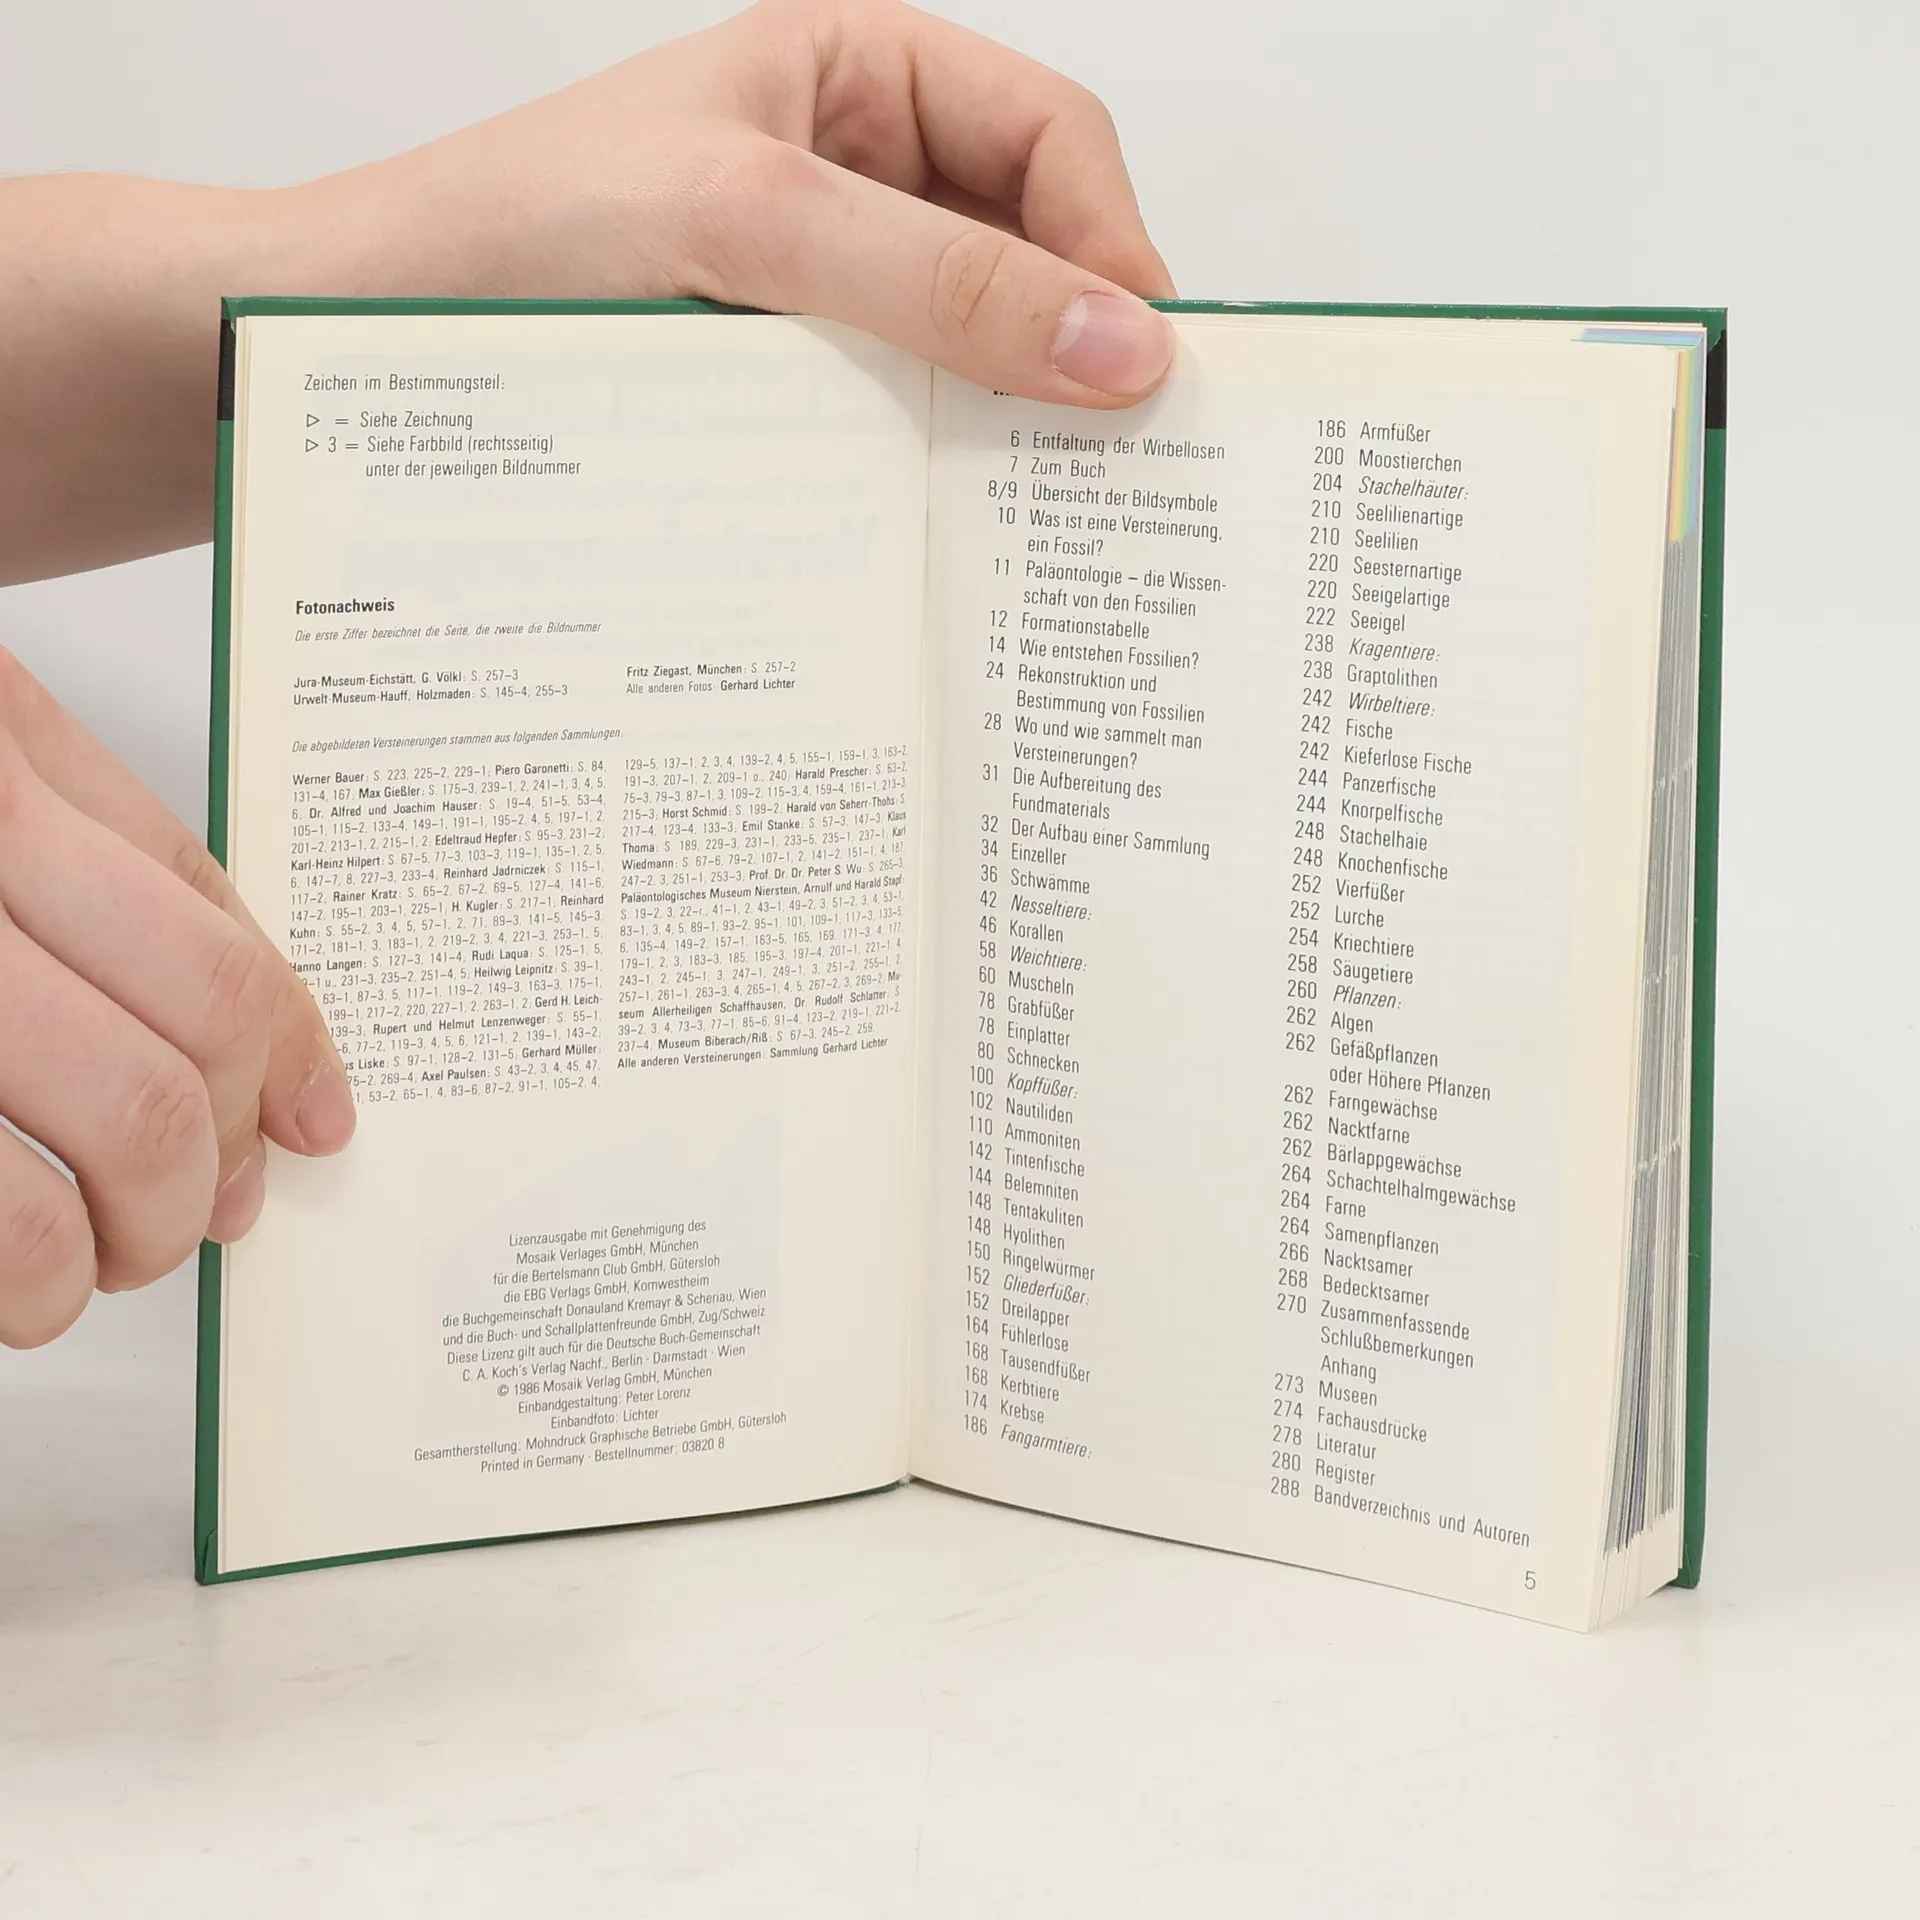 Zeichen im Bestimmungsteil:
▷ = Siehe Zeichnung
▷ 3 = Siehe Farbbild (rechtsseitig)
unter der jeweiligen Bildnummer
Fotonachweis
Die erste Ziffer bezeichnet die Seite, die zweite die Bildnummer
Jura-Museum-Eichstätt, G. Völkl: S. 257–3
Urwelt-Museum-Hauff, Holzmaden: S. 145–4, 255–3
Fritz Ziegast, München: S. 257–2
Alle anderen Fotos: Gerhard Lichter
Die abgebildeten Versteinerungen stammen aus folgenden Sammlungen:
Werner Bauer: S. 223, 225–2, 229–1; Piero Garonetti: S. 84,
131–4, 167; Max Gießler: S. 175–3, 239–1, 2, 241–1, 3, 4, 5,
6; Dr. Alfred und Joachim Hauser: S. 19–4, 51–5, 53–4,
105–1, 115–2, 133–4, 149–1, 191–1, 195–2, 4, 5, 197–1, 2,
201–2, 213–1, 2, 215–1, 2; Edeltraud Hepfer: S. 95–3, 231–2;
Karl-Heinz Hilpert: S. 67–5, 77–3, 103–3, 119–1, 135–1, 2, 5,
6, 147–7, 8, 227–3, 233–4; Reinhard Jadrniczek: S. 115–1,
117–2; Rainer Kratz: S. 65–2, 67–2, 69–5, 127–4, 141–6,
147–2, 195–1, 203–1, 225–1; H. Kugler: S. 217–1; Reinhard
Kuhn: S. 55–2, 3, 4, 5, 57–1, 2, 71, 89–3, 141–5, 145–3,
171–2, 181–1, 3, 183–1, 2, 219–2, 3, 4, 221–3, 253–1, 5;
Hanno Langen: S. 127–3, 141–4; Rudi Laqua: S. 125–1, 5,
–1 u., 231–3, 235–2, 251–4, 5; Heilwig Leipnitz: S. 39–1,
63–1, 87–3, 5, 117–1, 119–2, 149–3, 163–3, 175–1,
199–1, 217–2, 220, 227–1, 2, 263–1, 2; Gerd H. Leich-
139–3; Rupert und Helmut Lenzenweger: S. 55–1,
–6, 77–2, 119–3, 4, 5, 6, 121–1, 2, 139–1, 143–2;
Liske: S. 97–1, 128–2, 131–5; Gerhard Müller:
75–2, 269–4; Axel Paulsen: S. 43–2, 3, 4, 45, 47,
1, 53–2, 65–1, 4, 83–6, 87–2, 91–1, 105–2, 4,
129–5, 137–1, 2, 3, 4, 139–2, 4, 5, 155–1, 159–1, 3, 163–2,
191–3, 207–1, 2, 209–1 o., 240; Harald Prescher: S. 63–2,
75–3, 79–3, 87–1, 3, 109–2, 115–3, 4, 159–4, 161–1, 213–3,
215–3; Horst Schmid: S. 199–2; Harald von Seherr-Thohs: S.
217–4, 123–4, 133–3; Emil Stanke: S. 57–3, 147–3; Klaus
Thoma: S. 189, 229–3, 231–1, 233–5, 235–1, 237–1; Karl
Wiedmann: S. 67–6, 79–2, 107–1, 2, 141–2, 151–1, 4, 187,
247–2, 3, 251–1, 253–3; Prof. Dr. Dr. Peter S. Wu: S. 265–3;
Paläontologisches Museum Nierstein, Arnulf und Harald Stapf:
S. 19–2, 3, 22–r., 41–1, 2, 43–1, 49–2, 3, 51–2, 3, 4, 53–1,
83–1, 3, 4, 5, 89–1, 93–2, 95–1, 101, 109–1, 117–3, 133–5,
6, 135–4, 149–2, 157–1, 163–5, 165, 169, 171–3, 4, 177,
179–1, 2, 3, 183–3, 185, 195–3, 197–4, 201–1, 221–1, 4,
243–1, 2, 245–1, 3, 247–1, 249–1, 3, 251–2, 255–1, 2,
257–1, 261–1, 263–3, 4, 265–1, 4, 5, 267–2, 3, 269–2; Mu-
seum Allerheiligen Schaffhausen, Dr. Rudolf Schlatter: S.
39–2, 3, 4, 73–3, 77–1, 85–6, 91–4, 123–2, 219–1, 221–2,
237–4; Museum Biberach/Riß: S. 67–3, 245–2, 259.
Alle anderen Versteinerungen: Sammlung Gerhard Lichter
Lizenzausgabe mit Genehmigung des
Mosaik Verlages GmbH, München
für die Bertelsmann Club GmbH, Gütersloh
die EBG Verlags GmbH, Kornwestheim
die Buchgemeinschaft Donauland Kremayr & Scheriau, Wien
und die Buch- und Schallplattenfreunde GmbH, Zug/Schweiz
Diese Lizenz gilt auch für die Deutsche Buch-Gemeinschaft
C. A. Koch's Verlag Nachf., Berlin · Darmstadt · Wien
© 1986 Mosaik Verlag GmbH, München
Einbandgestaltung: Peter Lorenz
Einbandfoto: Lichter
Gesamtherstellung: Mohndruck Graphische Betriebe GmbH, Gütersloh
Printed in Germany · Bestellnummer: 03820 8
6 Entfaltung der Wirbellosen
7 Zum Buch
8/9 Übersicht der Bildsymbole
10 Was ist eine Versteinerung,
ein Fossil?
11 Paläontologie – die Wissen-
schaft von den Fossilien
12 Formationstabelle
14 Wie entstehen Fossilien?
24 Rekonstruktion und
Bestimmung von Fossilien
28 Wo und wie sammelt man
Versteinerungen?
31 Die Aufbereitung des
Fundmaterials
32 Der Aufbau einer Sammlung
34 Einzeller
36 Schwämme
42 Nesseltiere:
46 Korallen
58 Weichtiere:
60 Muscheln
78 Grabfüßer
78 Einplatter
80 Schnecken
100 Kopffüßer:
102 Nautiliden
110 Ammoniten
142 Tintenfische
144 Belemniten
148 Tentakuliten
148 Hyolithen
150 Ringelwürmer
152 Gliederfüßer:
152 Dreilapper
164 Fühlerlose
168 Tausendfüßer
168 Kerbtiere
174 Krebse
186 Fangarmtiere:
186 Armfüßer
200 Moostierchen
204 Stachelhäuter:
210 Seelilienartige
210 Seelilien
220 Seesternartige
220 Seeigelartige
222 Seeigel
238 Kragentiere:
238 Graptolithen
242 Wirbeltiere:
242 Fische
242 Kieferlose Fische
244 Panzerfische
244 Knorpelfische
248 Stachelhaie
248 Knochenfische
252 Vierfüßer
252 Lurche
254 Kriechtiere
258 Säugetiere
260 Pflanzen:
262 Algen
262 Gefäßpflanzen
oder Höhere Pflanzen
262 Farngewächse
262 Nacktfarne
262 Bärlappgewächse
264 Schachtelhalmgewächse
264 Farne
264 Samenpflanzen
266 Nacktsamer
268 Bedecktsamer
270 Zusammenfassende
Schlußbemerkungen
Anhang
273 Museen
274 Fachausdrücke
278 Literatur
280 Register
288 Bandverzeichnis und Autoren
5